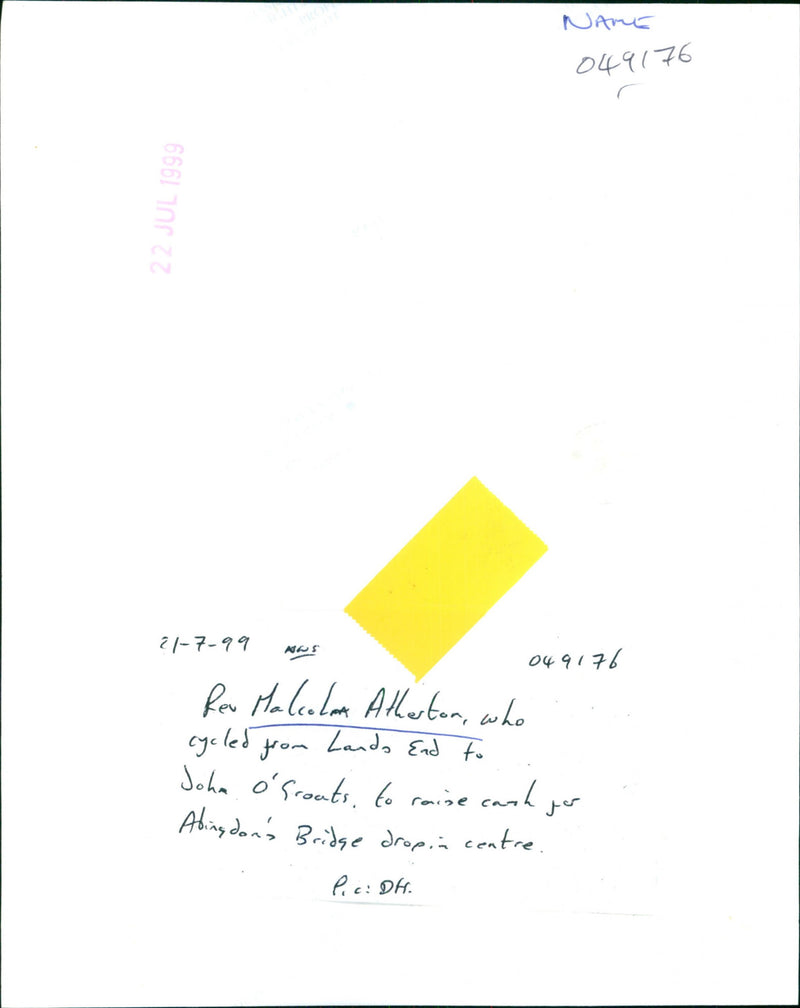 NAME
049176
22 JUL 1999
21-7-99 NWS 049176
Rev Malcolm Atherton, who
cycled from Lands End to
John O'Groats, to raise cash for
Abingdon's Bridge drop in centre.
Pic: DH.